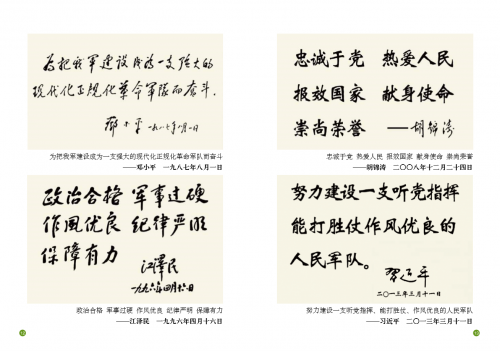 为把我军建设成为一支强大的
现代化正规化革命军队而奋斗.
邓小平 一九八七年八月一日
为把我军建设成为一支强大的现代化正规化革命军队而奋斗
——邓小平 一九八七年八月一日
政治合格 军事过硬
作风优良 纪律严明
保障有力
江泽民
一九九六年四月十六日
政治合格 军事过硬 作风优良 纪律严明 保障有力
——江泽民 一九九六年四月十六日
忠诚于党 热爱人民
报效国家 献身使命
崇尚荣誉 ——胡锦涛
忠诚于党 热爱人民 报效国家 献身使命 崇尚荣誉
——胡锦涛 二〇〇八年十二月二十四日
努力建设一支听党指挥
能打胜仗作风优良的
人民军队。
习近平
二〇一三年三月十一日
努力建设一支听党指挥、能打胜仗、作风优良的人民军队
——习近平 二〇一三年三月十一日